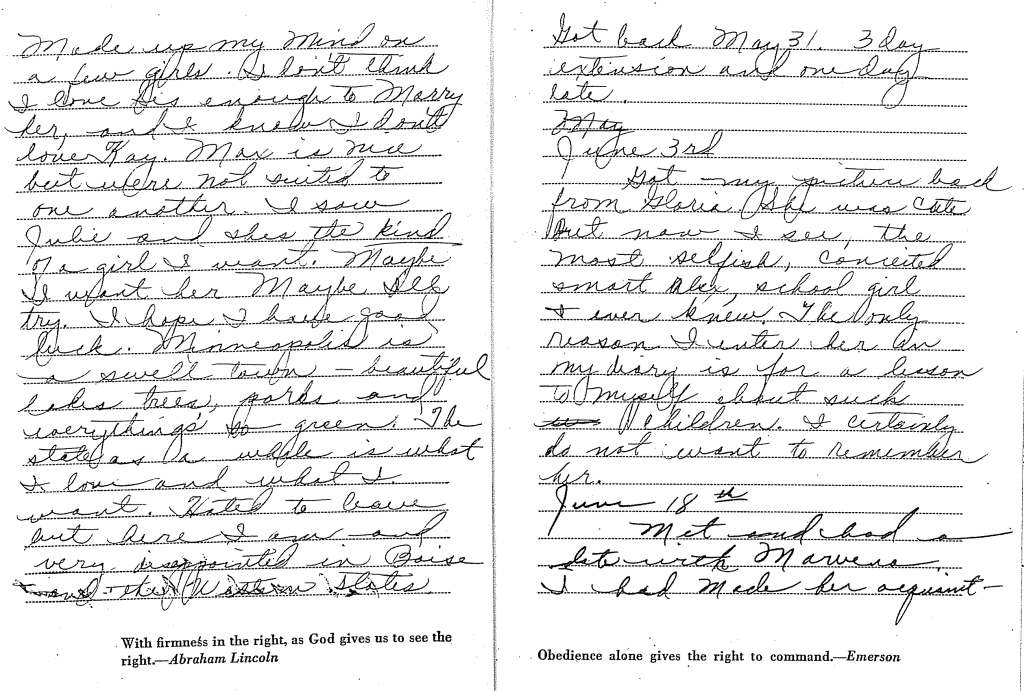 Made up my Mind on
a few girls. I don't think
I love Sis enough to Marry
her, and I know I don't
love Kay. Max is nice
but were not suited to
one another. I saw
Julie and shes the kind
of a girl I want. Maybe
I want her Maybe I'll
try. I hope I have good
luck. Minneapolis is
a swell town – beautiful
lakes trees, parks and
everythings so green. The
state as a whole is what
I love and what I
want. Hated to leave
but here I am and
very disappointed in Boise
and the Western States.
With firmness in the right, as God gives us to see the
right.—Abraham Lincoln
Got back May 31. 3 day
extension and one day
late.
May
June 3rd
Got my picture back
from Gloria. She was cute
but now I see, the
most selfish, concieted
smart Alex, school girl
I ever knew. The only
reason I enter her in
my diary is for a lesson
to myself about such
children. I certainly
do not want to remember
her.
June 18th
Met and had a
date with Marvena.
I had Made her acquaint-
Obedience alone gives the right to command.—Emerson